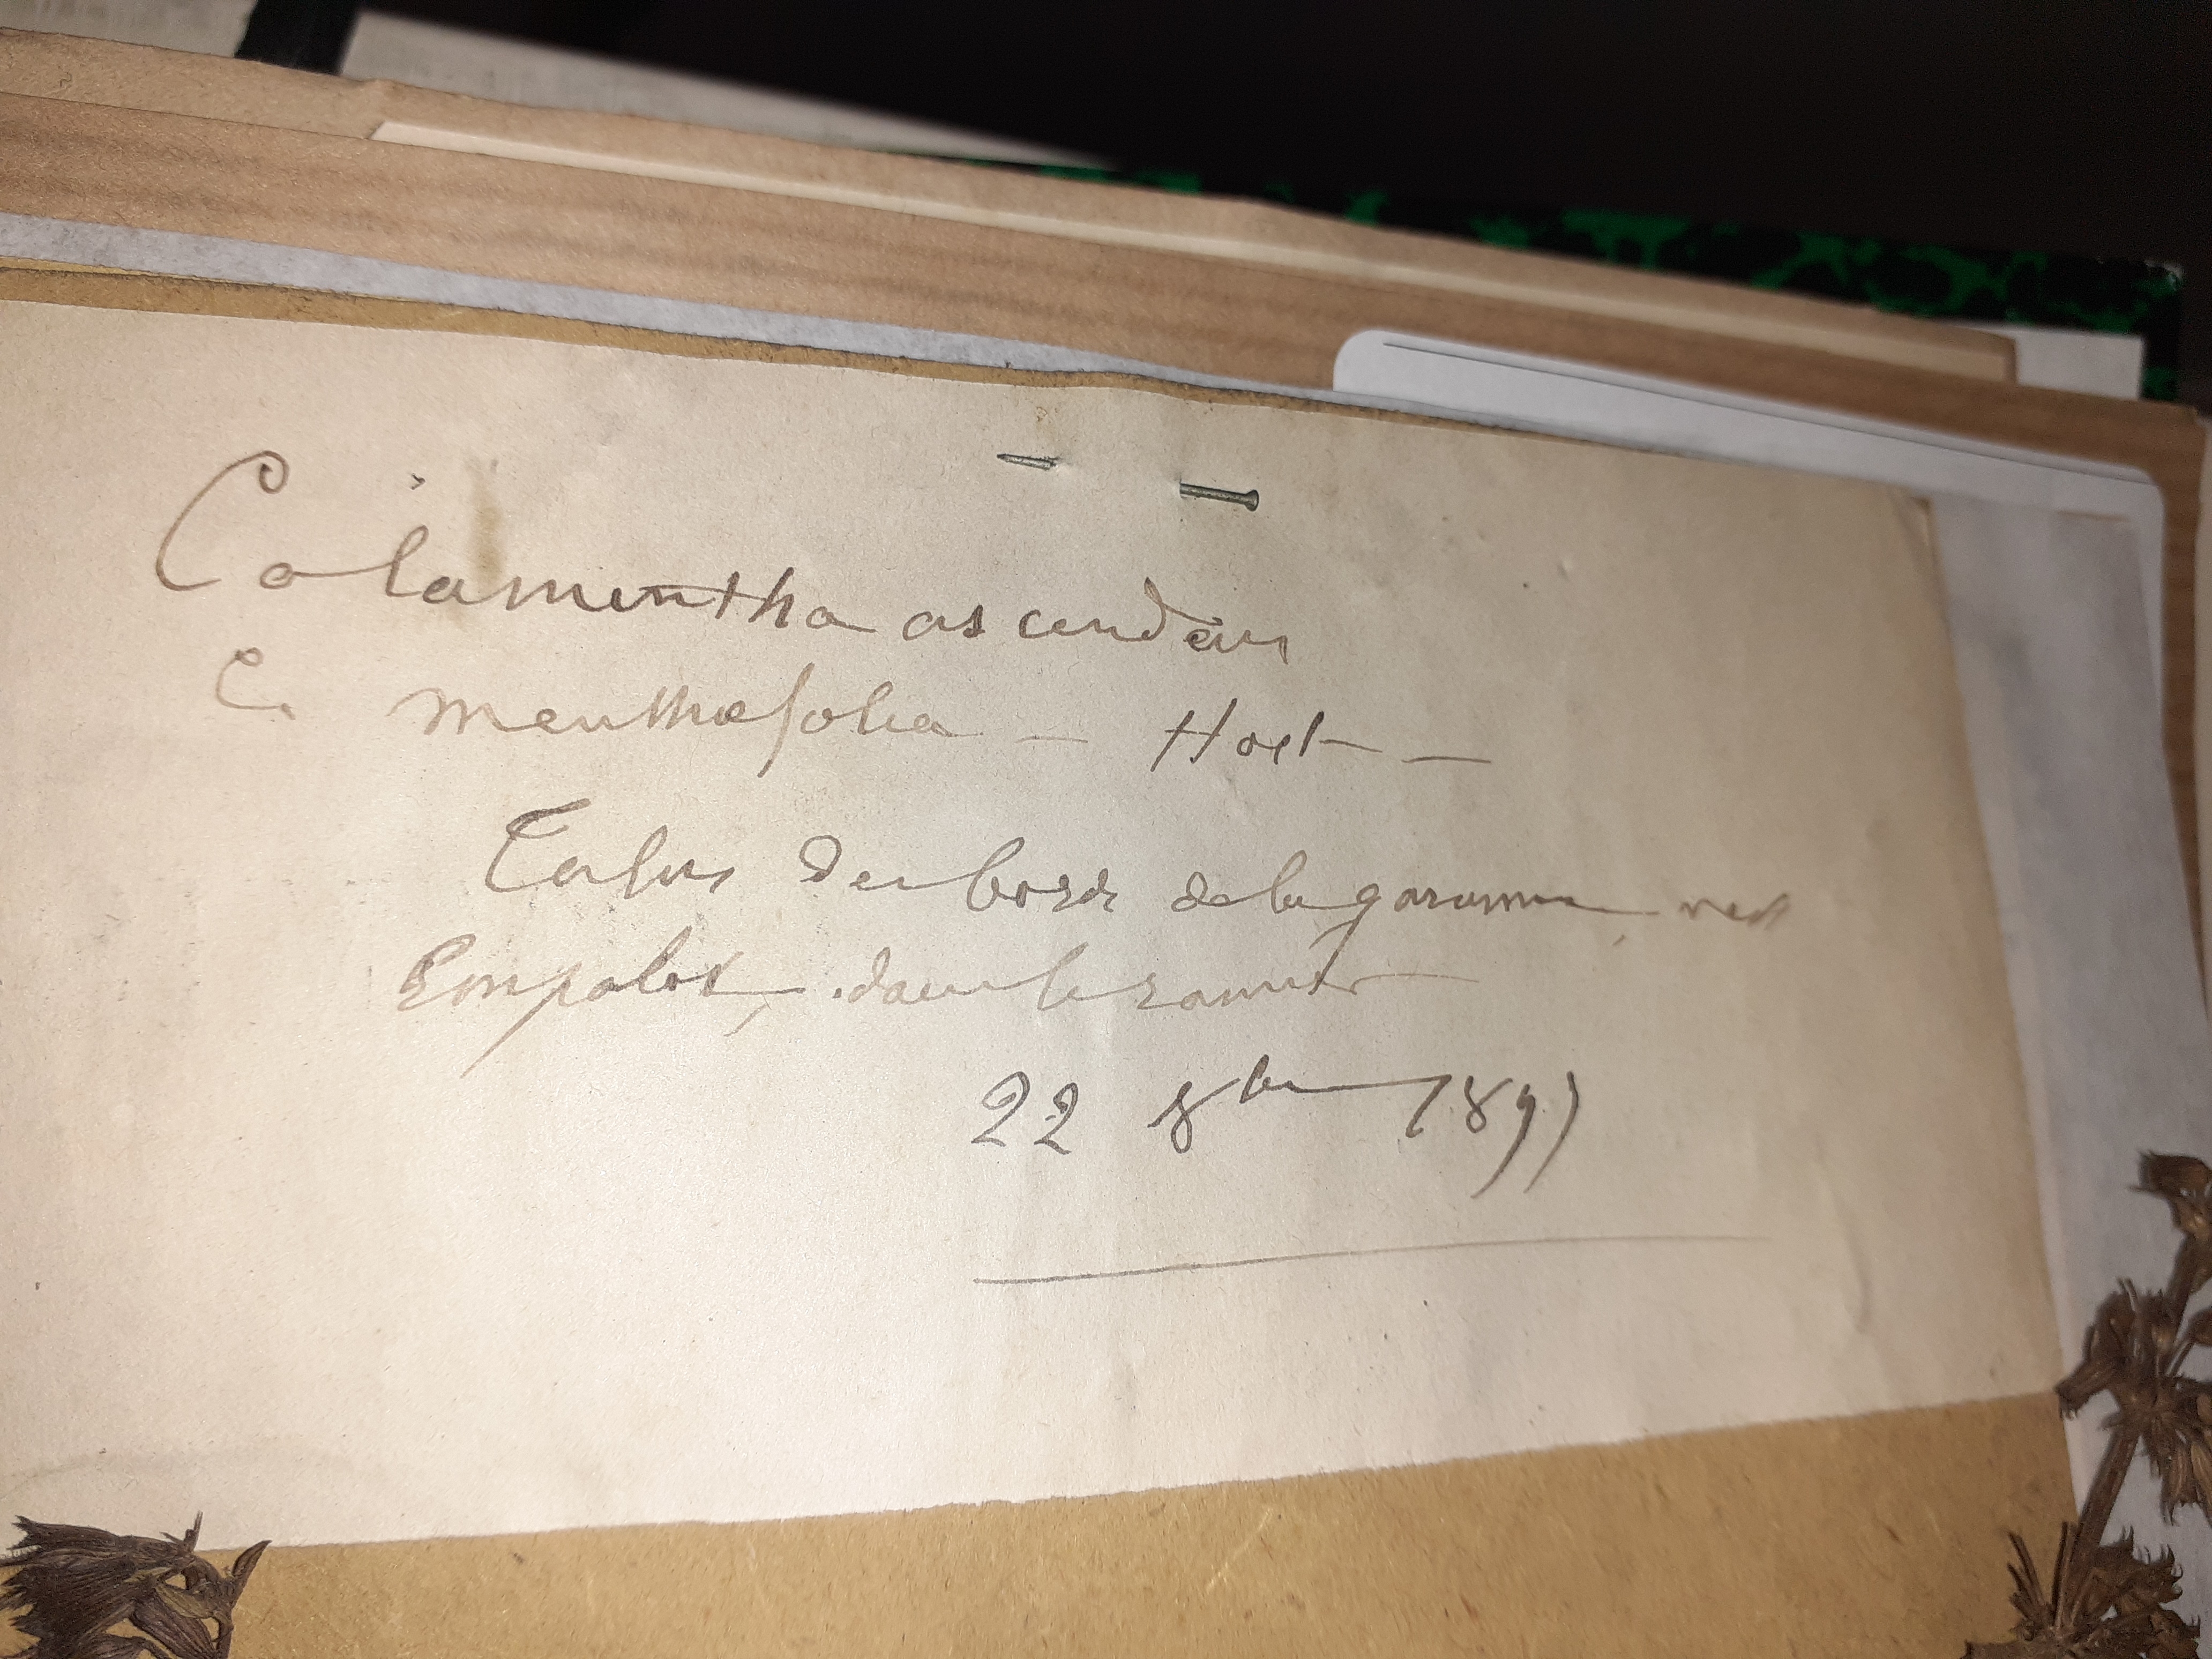 Calamentha ascendens
C. menthæfolia — Host —
Talus des bords de la garonne, vers
Empalot, dans le ramier
22 8bre 1897